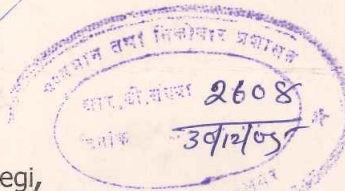 अण्डमान तथा निकोबार प्रशासन
आर.डी.संख्या 2608
दिनांक 30/12/05
egi,